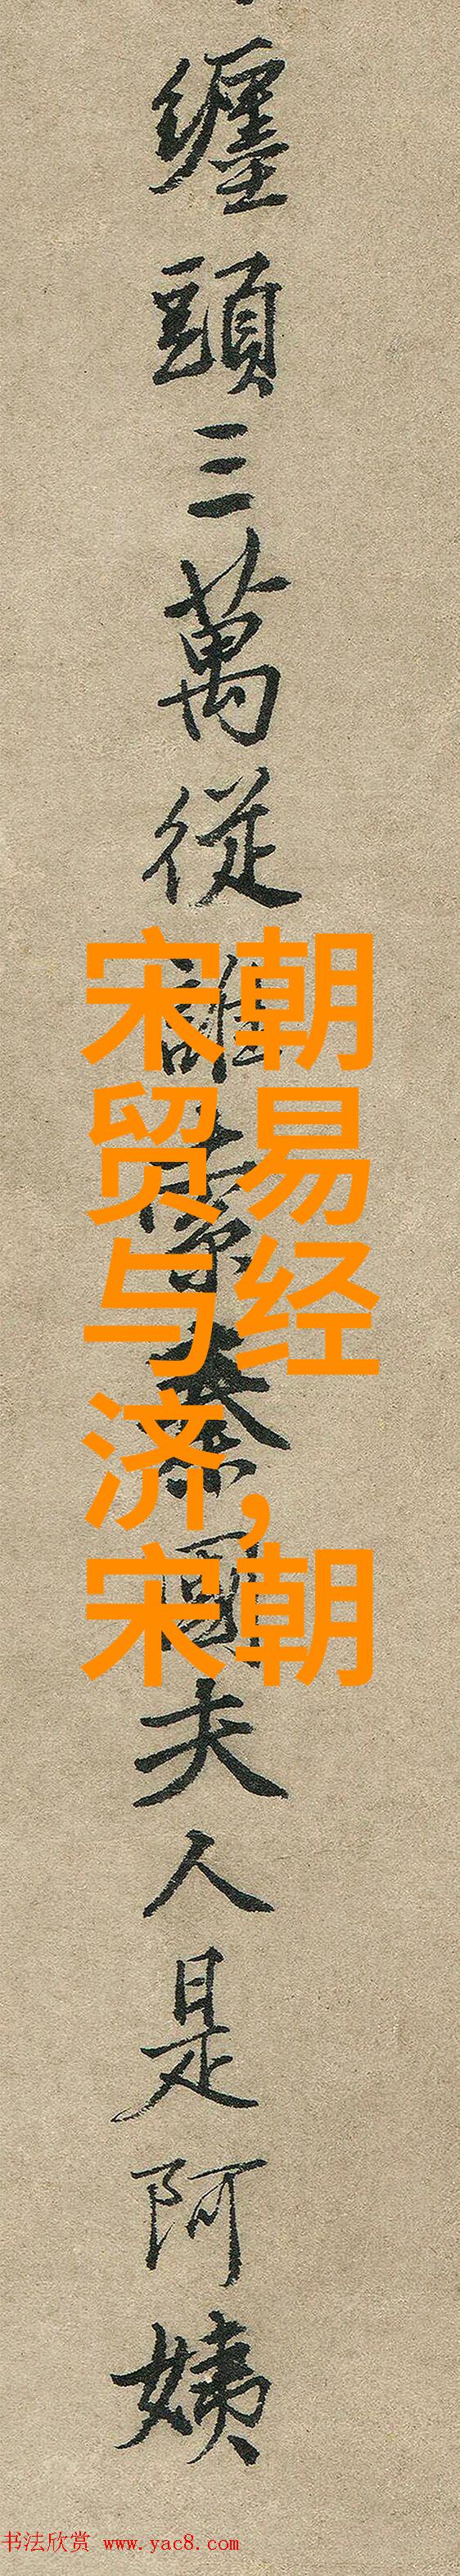 缠頭三萬從誰索秦國夫人是阿姨
宋朝
贸易
与经
济,
宋朝
书法欣赏 www.yac8.com